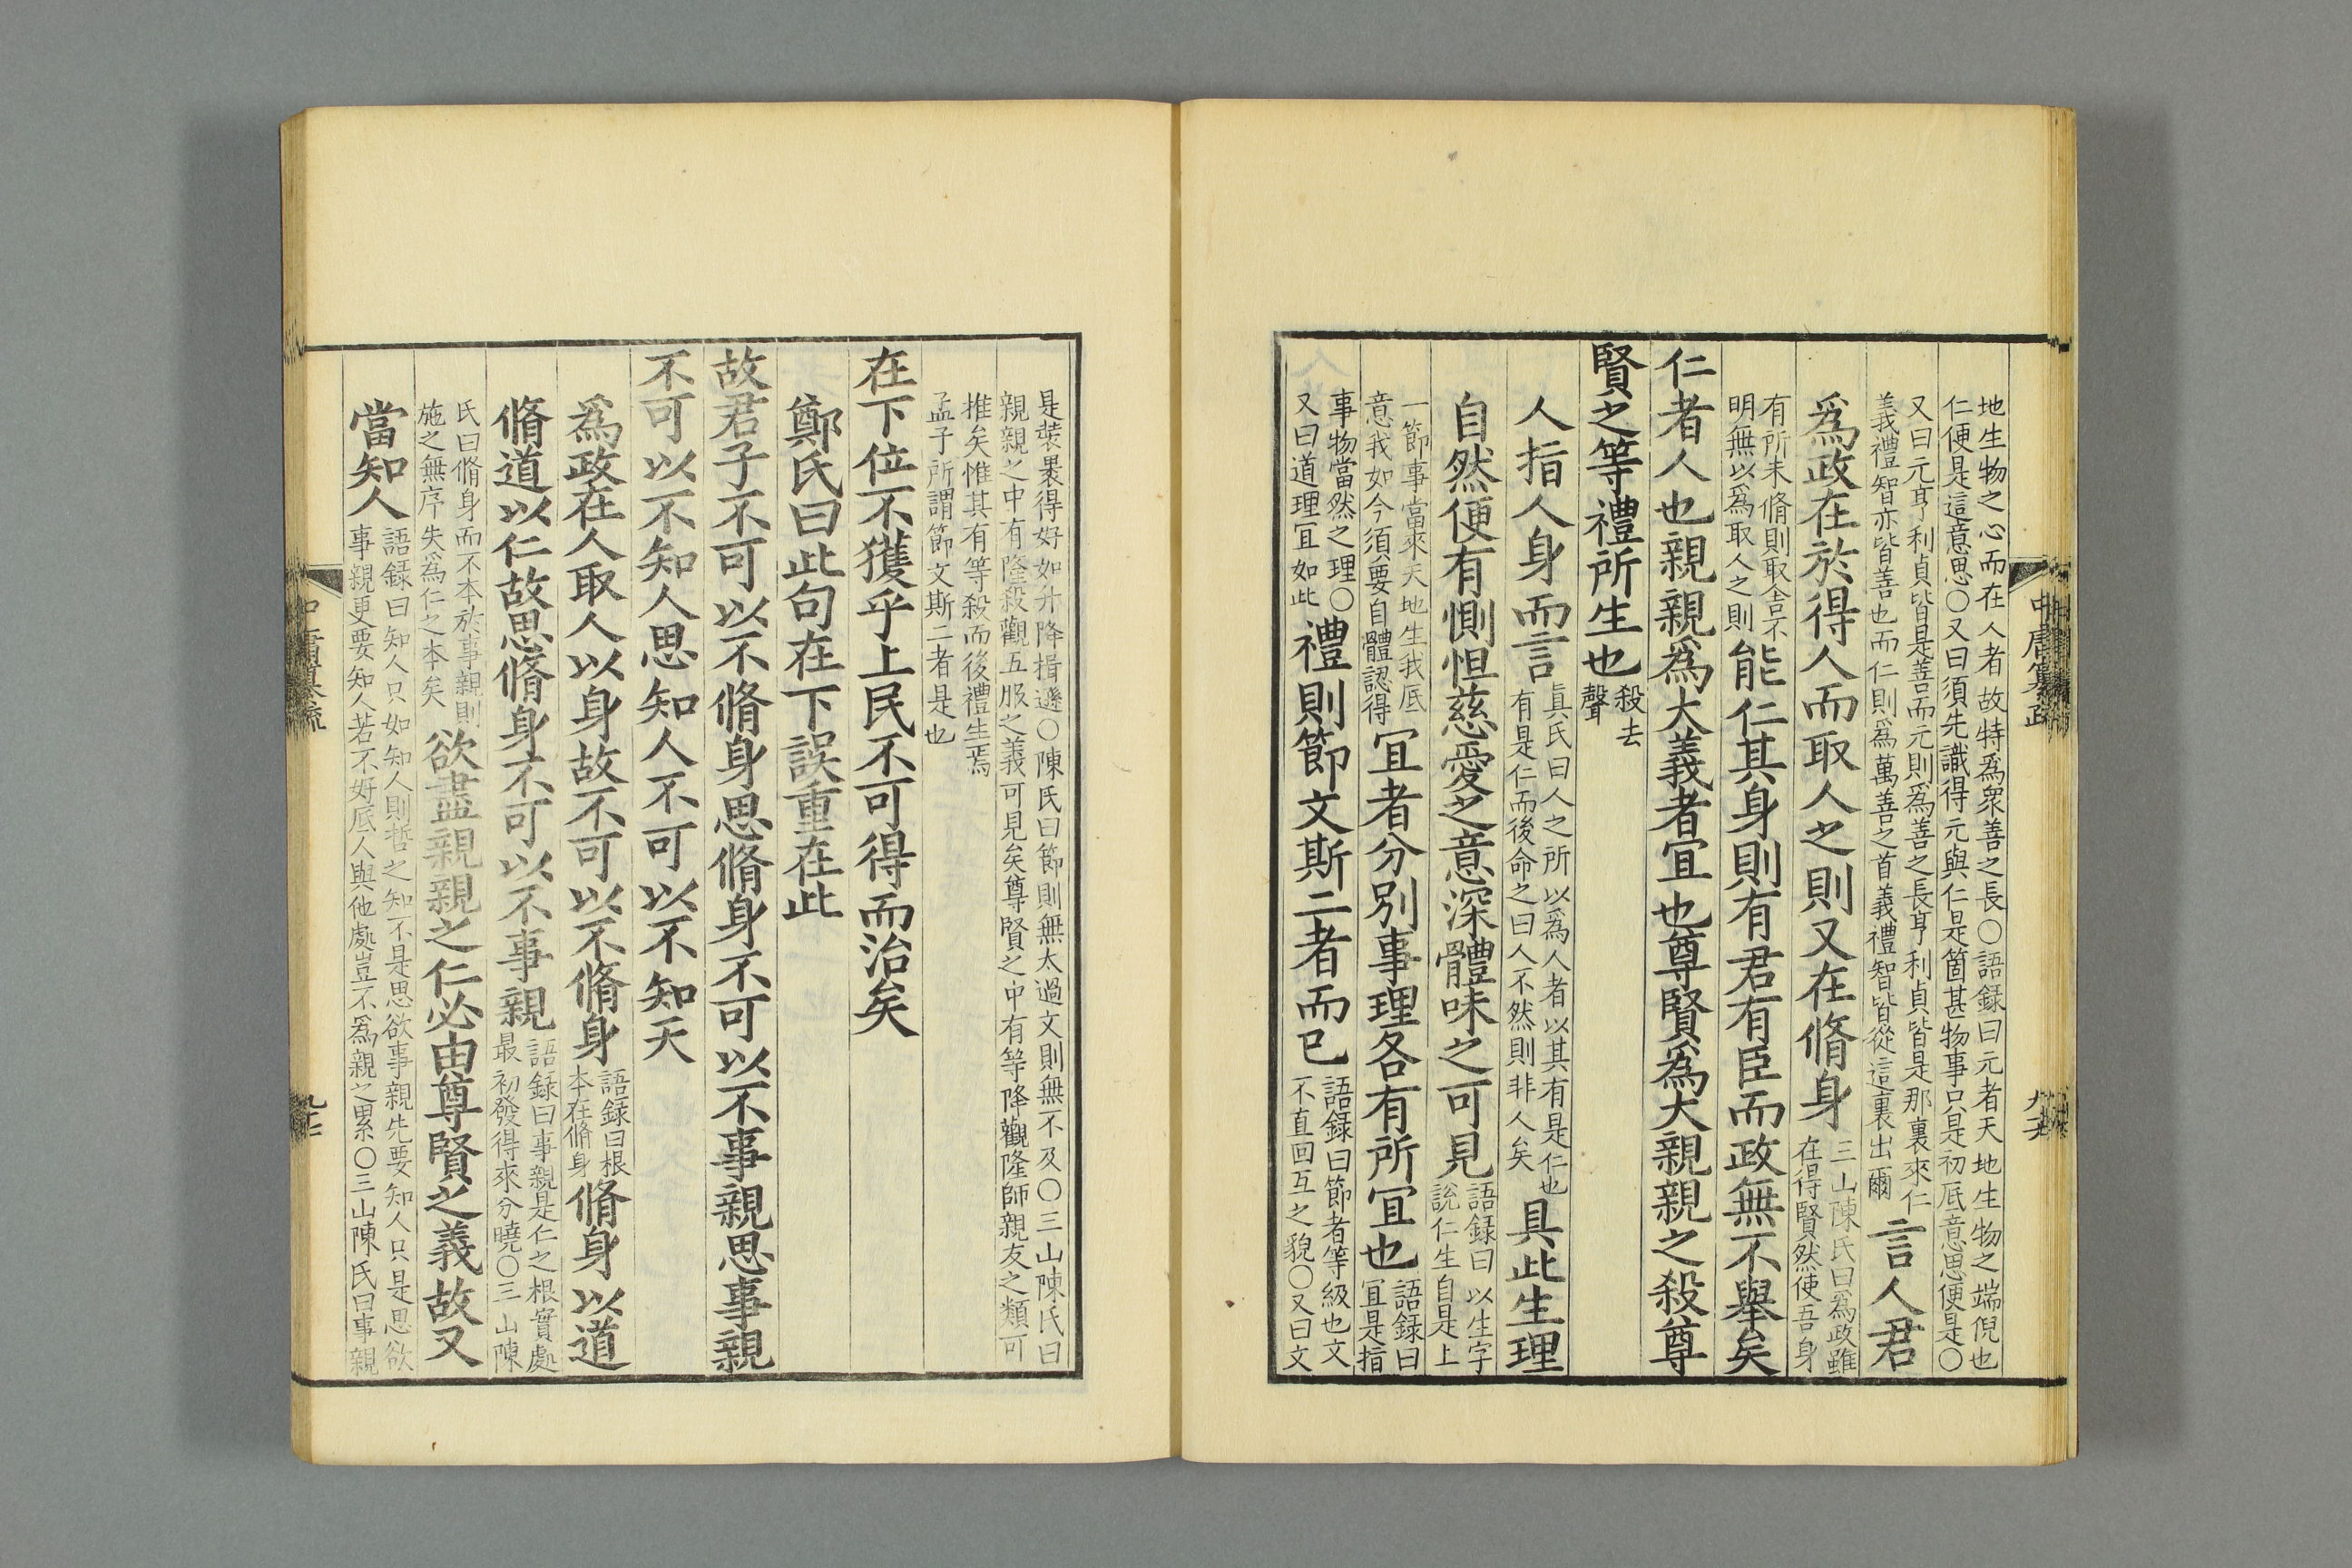 地生物之心而在人者故特爲衆善之長○語録曰元者天地生物之端倪也
仁便是這意思○又曰須先識得元與仁是箇甚物事只是初厎意思便是○
又曰元亨利貞皆是善而元則爲善之長亨利貞皆是那裏來仁
義禮智亦皆善也而仁則爲萬善之首義禮智皆從這裏出爾
言人君
爲政在於得人而取人之則又在脩身
三山陳氏曰爲政雖
在得賢然使吾身
有所未脩則取舎不
明無以爲取人之則
能仁其身則有君有臣而政無不舉矣
仁者人也親親爲大義者宜也尊賢爲大親親之殺尊
賢之等禮所生也
殺去
聲
人指人身而言
眞氏曰人之所以爲人者以其有是仁也
有是仁而後命之曰人不然則非人矣
具此生理
自然便有惻怛慈愛之意深體味之可見
語録曰以生字
說仁生自是上
一節事當來天地生我厎
意我如今須要自體認得
宜者分别事理各有所宜也
語録曰
宜是指
事物當然之理○
又曰道理宜如此
禮則節文斯二者而已
語録曰節者等級也文
不直回互之貌○又曰文
中庸纂疏
是裝褁得好如升降揖遜○陳氏曰節則無太過文則無不及○三山陳氏曰
親親之中有隆殺觀五服之義可見矣尊賢之中有等降觀隆師親友之類可
推矣惟其有等殺而後禮生焉
孟子所謂節文斯二者是也
在下位不獲乎上民不可得而治矣
鄭氏曰此句在下誤重在此
故君子不可以不脩身思脩身不可以不事親思事親
不可以不知人思知人不可以不知天
爲政在人取人以身故不可以不脩身
語録曰根
本在脩身
脩身以道
脩道以仁故思脩身不可以不事親
語録曰事親是仁之根實處
最初發得來分曉○三山陳
氏曰脩身而不本於事親則
施之無序失爲仁之本矣
欲盡親親之仁必由尊賢之義故又
當知人
語録曰知人只如知人則哲之知不是思欲事親先要知人只是思欲
事親更要知人若不好厎人與他處豈不爲親之累○三山陳氏曰事親